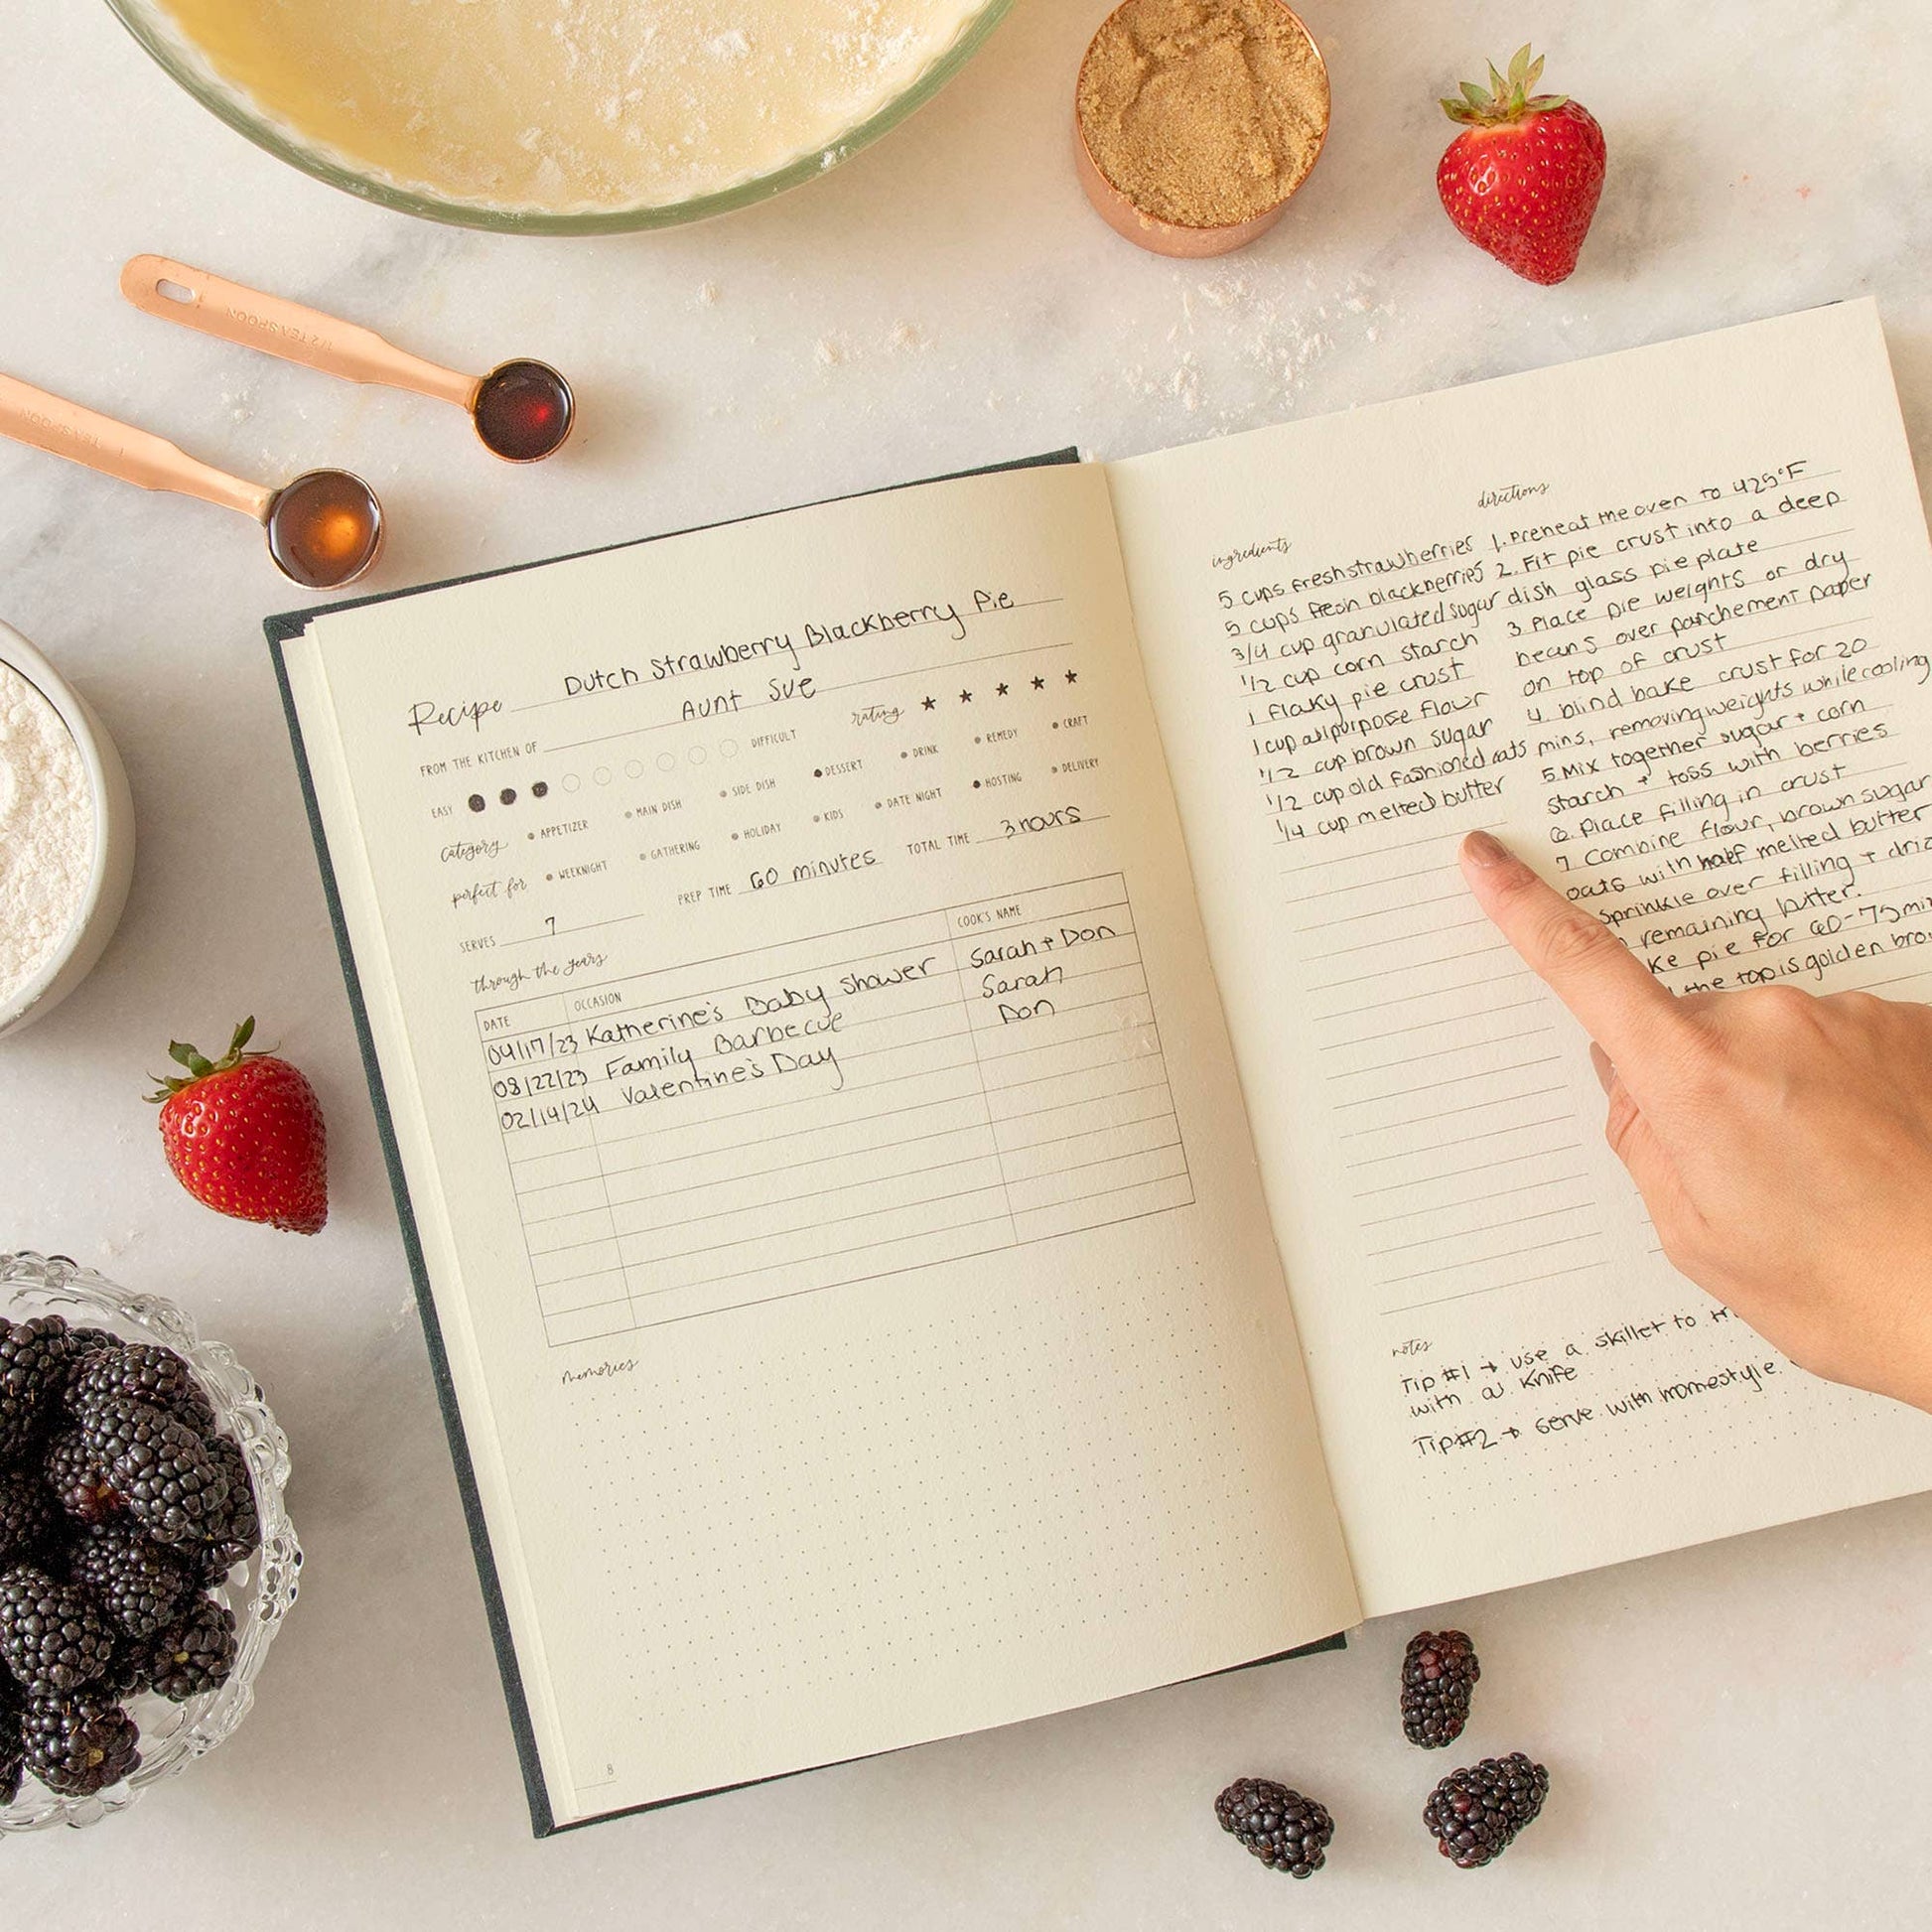 Recipe Dutch Strawberry Blackberry Pie
FROM THE KITCHEN OF Aunt Sue
EASY DIFFICULT rating ★ ★ ★ ★ ★
category APPETIZER MAIN DISH SIDE DISH DESSERT DRINK REMEDY CRAFT
perfect for WEEKNIGHT GATHERING HOLIDAY KIDS DATE NIGHT HOSTING DELIVERY
SERVES 7 PREP TIME 60 minutes TOTAL TIME 3 hours
through the years
DATE OCCASION COOK'S NAME
04/17/23 Katherine's Baby Shower Sarah + Don
08/22/23 Family Barbecue Sarah
02/14/24 Valentine's Day Don
memories
8
ingredients
5 cups fresh strawberries
5 cups fresh blackberries
3/4 cup granulated sugar
1/2 cup corn starch
1 flaky pie crust
1 cup allpurpose flour
1/2 cup brown sugar
1/2 cup old fashioned oats
1/4 cup melted butter
directions
1. Preheat the oven to 425°F
2. Fit pie crust into a deep
dish glass pie plate
3 Place pie weights or dry
beans over parchement paper
on top of crust
4. blind bake crust for 20
mins, removing weights while cooling
5. Mix together sugar + corn
starch + toss with berries
6. Place filling in crust
7 Combine flour, brown sugar
oats with half melted butter
Sprinkle over filling + driz
remaining butter.
ke pie for 60-75 min
the top is golden bro
notes
Tip #1 → use a skillet to
with a knife
Tip #2 → Serve with homestyle
1/2 TEASPOON
1 TEASPOON